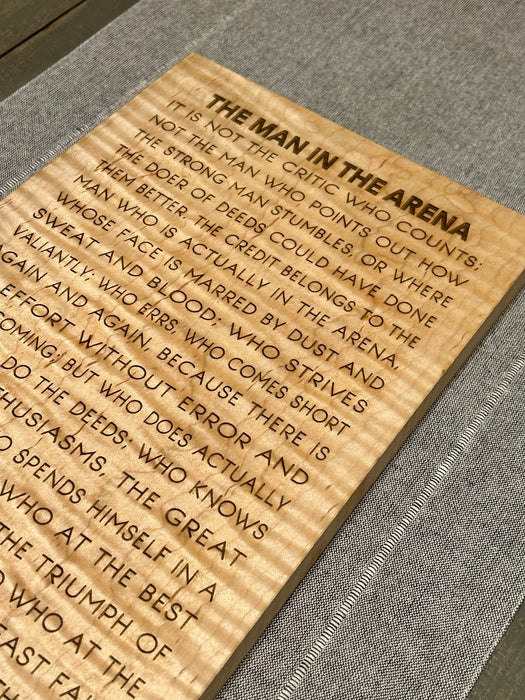 THE MAN IN THE ARENA
IT IS NOT THE CRITIC WHO COUNTS;
NOT THE MAN WHO POINTS OUT HOW
THE STRONG MAN STUMBLES, OR WHERE
THE DOER OF DEEDS COULD HAVE DONE
THEM BETTER. THE CREDIT BELONGS TO THE
MAN WHO IS ACTUALLY IN THE ARENA,
WHOSE FACE IS MARRED BY DUST AND
SWEAT AND BLOOD; WHO STRIVES
VALIANTLY; WHO ERRS, WHO COMES SHORT
AGAIN AND AGAIN, BECAUSE THERE IS
EFFORT WITHOUT ERROR AND
COMING; BUT WHO DOES ACTUALLY
DO THE DEEDS; WHO KNOWS
THUSIASMS, THE GREAT
O SPENDS HIMSELF IN A
WHO AT THE BEST
THE TRIUMPH OF
D WHO AT THE
EAST FAI